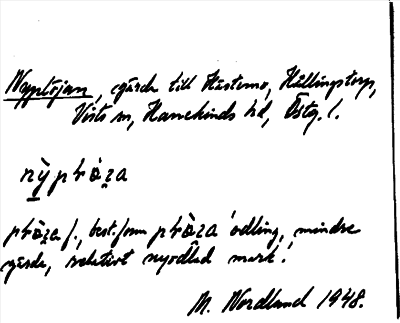 Nyplöjan, gärde till Hästemo, Hällingstorp,
Vists sn, Hanekinds hd, Östg. l.
plöza f., best. form plöza 'odling, mindre
gärde, relativt nyodlad mark.'
M. Nordland 1948.